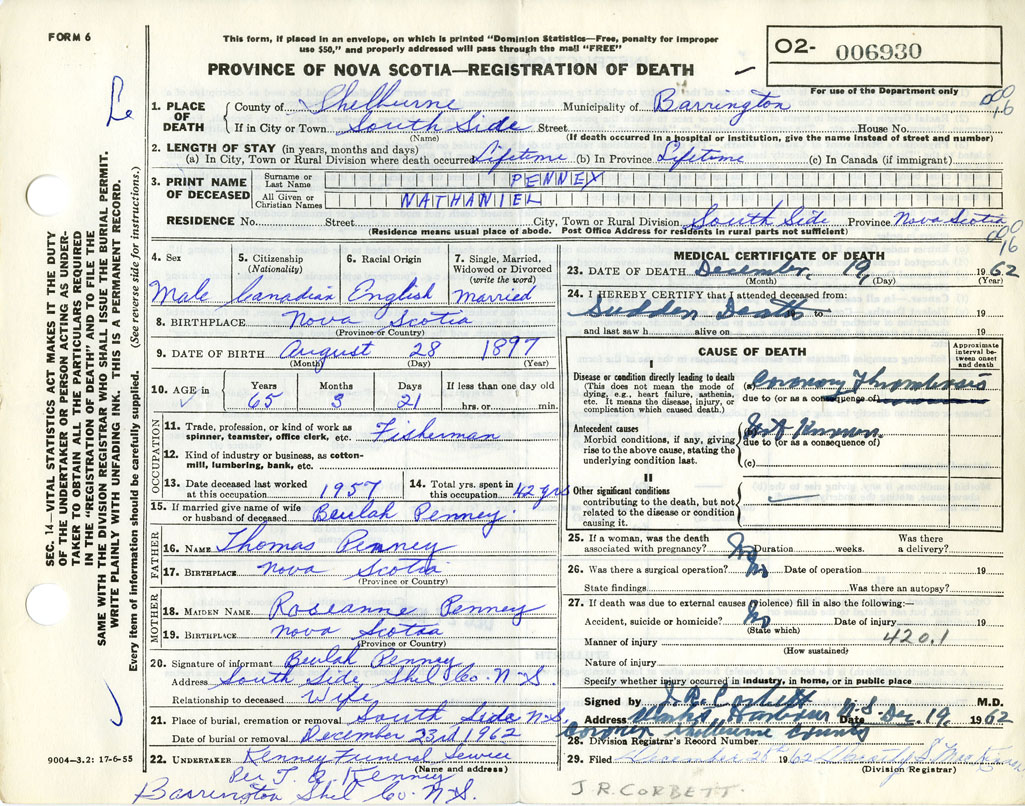 FORM 6
This form, if placed in an envelope, on which is printed "Dominion Statistics—Free, penalty for improper
use $50," and properly addressed will pass through the mail "FREE"
O2- 006930
PROVINCE OF NOVA SCOTIA—REGISTRATION OF DEATH
For use of the Department only
1. PLACE OF DEATH
County of Shelburne Municipality of Barrington
000
16
If in City or Town South Side Street House No.
(Name) (If death occurred in a hospital or institution, give the name instead of street and number)
2. LENGTH OF STAY (in years, months and days)
(a) In City, Town or Rural Division where death occurred Lifetime (b) In Province Lifetime (c) In Canada (if immigrant)
3. PRINT NAME OF DECEASED
Surname or Last Name PENNEY
All Given or Christian Names NATHANIEL
RESIDENCE No. Street City, Town or Rural Division South Side Province Nova Scotia
(Residence means usual place of abode. Post Office Address for residents in rural parts not sufficient)
000
16
4. Sex Male
5. Citizenship (Nationality) Canadian
6. Racial Origin English
7. Single, Married, Widowed or Divorced (write the word) Married
8. BIRTHPLACE Nova Scotia
(Province or Country)
9. DATE OF BIRTH August 28 1897
(Month) (Day) (Year)
10. AGE in Years 65 Months 3 Days 21 If less than one day old hrs. or min.
OCCUPATION
11. Trade, profession, or kind of work as
spinner, teamster, office clerk, etc. Fisherman
12. Kind of industry or business, as cotton-
mill, lumbering, bank, etc.
13. Date deceased last worked at this occupation 1957
14. Total yrs. spent in this occupation 42 yrs
15. If married give name of wife
or husband of deceased Beulah Penney
FATHER
16. NAME Thomas Penney
17. BIRTHPLACE Nova Scotia
(Province or Country)
MOTHER
18. MAIDEN NAME Roseanne Penney
19. BIRTHPLACE Nova Scotia
(Province or Country)
20. Signature of informant Beulah Penney
Address South Side Shel Co. N.S.
Relationship to deceased Wife
21. Place of burial, cremation or removal South Side N.S.
Date of burial or removal December 23rd 1962
22. UNDERTAKER Kenney Funeral Service
(Name and address)
Per T. A. Kenney
Barrington Shel Co. N.S.
MEDICAL CERTIFICATE OF DEATH
23. DATE OF DEATH December 19, 1962
(Month) (Day) (Year)
24. I HEREBY CERTIFY that I attended deceased from:
Sudden Death to 19
and last saw h alive on 19
CAUSE OF DEATH
Approximate interval between onset and death
I
Disease or condition directly leading to death
(This does not mean the mode of
dying, e.g., heart failure, asthenia,
etc. It means the disease, injury, or
complication which caused death.)
(a) Coronary Thrombosis
due to (or as a consequence of)
Antecedent causes
Morbid conditions, if any, giving
rise to the above cause, stating the
underlying condition last.
(b) Not Known
due to (or as a consequence of)
(c)
II
Other significant conditions
contributing to the death, but not
related to the disease or condition
causing it.
25. If a woman, was the death
associated with pregnancy? No Duration weeks. Was there a delivery?
26. Was there a surgical operation? No Date of operation 19
State findings Was there an autopsy?
27. If death was due to external causes (violence) fill in also the following:—
Accident, suicide or homicide? No Date of injury 19
(State which)
Manner of injury 420.1
(How sustained)
Nature of injury
Specify whether injury occurred in industry, in home, or in public place
Signed by J. R. Corbett M.D.
Address Harbour N.S. Date Dec. 19, 1962
Coroner Shelburne County
28. Division Registrar's Record Number
29. Filed December 28th 1962
(Division Registrar)
J.R. CORBETT.
SEC. 14—VITAL STATISTICS ACT MAKES IT THE DUTY
OF THE UNDERTAKER OR PERSON ACTING AS UNDER-
TAKER TO OBTAIN ALL THE PARTICULARS REQUIRED
IN THE "REGISTRATION OF DEATH" AND TO FILE THE
SAME WITH THE DIVISION REGISTRAR WHO SHALL ISSUE THE BURIAL PERMIT.
WRITE PLAINLY WITH UNFADING INK. THIS IS A PERMANENT RECORD.
Every item of information should be carefully supplied. (See reverse side for instructions.)
9004—3.2: 17-6-55